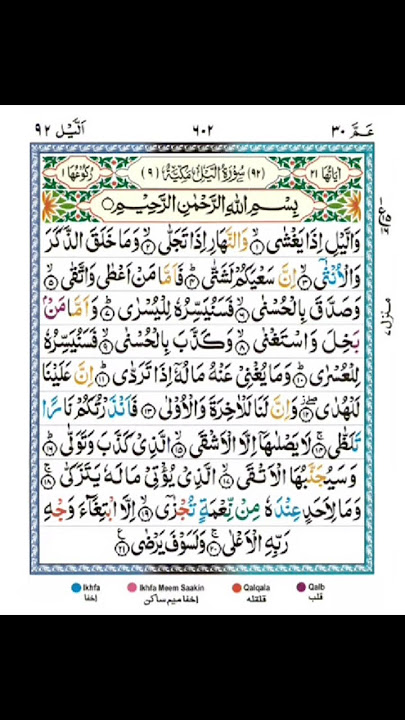 اَلَّيْل ٩٢ ٦٠٢ عَمَّ ٣٠
اٰيَاتُهَا ٢١ (٩٢) سُوْرَةُ الَّيْلِ مَكِّيَّةٌ (٩) رُكُوْعُهَا ١
بِسْمِ اللّٰهِ الرَّحْمٰنِ الرَّحِيْمِ
وَالَّيْلِ اِذَا يَغْشٰى ۙ١ وَالنَّهَارِ اِذَا تَجَلّٰى ۙ٢ وَمَا خَلَقَ الذَّكَرَ
وَالْاُنْثٰٓى ۙ٣ اِنَّ سَعْيَكُمْ لَشَتّٰى ؕ٤ فَاَمَّا مَنْ اَعْطٰى وَاتَّقٰى ۙ٥
وَصَدَّقَ بِالْحُسْنٰى ۙ٦ فَسَنُيَسِّرُهٗ لِلْيُسْرٰى ؕ٧ وَاَمَّا مَنْۢ
بَخِلَ وَاسْتَغْنٰى ۙ٨ وَكَذَّبَ بِالْحُسْنٰى ۙ٩ فَسَنُيَسِّرُهٗ
لِلْعُسْرٰى ؕ١٠ وَمَا يُغْنِيْ عَنْهُ مَالُهٗۤ اِذَا تَرَدّٰى ؕ١١ اِنَّ عَلَيْنَا
لَلْهُدٰى ۖ١٢ وَاِنَّ لَنَا لَلْاٰخِرَةَ وَالْاُوْلٰى ١٣ فَاَنْذَرْتُكُمْ نَارًا
تَلَظّٰى ۚ١٤ لَا يَصْلٰىهَاۤ اِلَّا الْاَشْقَى ۙ١٥ الَّذِيْ كَذَّبَ وَتَوَلّٰى ؕ١٦
وَسَيُجَنَّبُهَا الْاَتْقَى ۙ١٧ الَّذِيْ يُؤْتِيْ مَالَهٗ يَتَزَكّٰى ۚ١٨
وَمَا لِاَحَدٍ عِنْدَهٗ مِنْ نِّعْمَةٍ تُجْزٰٓى ۙ١٩ اِلَّا ابْتِغَآءَ وَجْهِ
رَبِّهِ الْاَعْلٰى ۚ٢٠ وَلَسَوْفَ يَرْضٰى ٢١
منزل ٧
Ikhfa Ikhfa Meem Saakin Qalqala Qalb
اِخفا اِخفا میم ساکن قلقلہ قلب